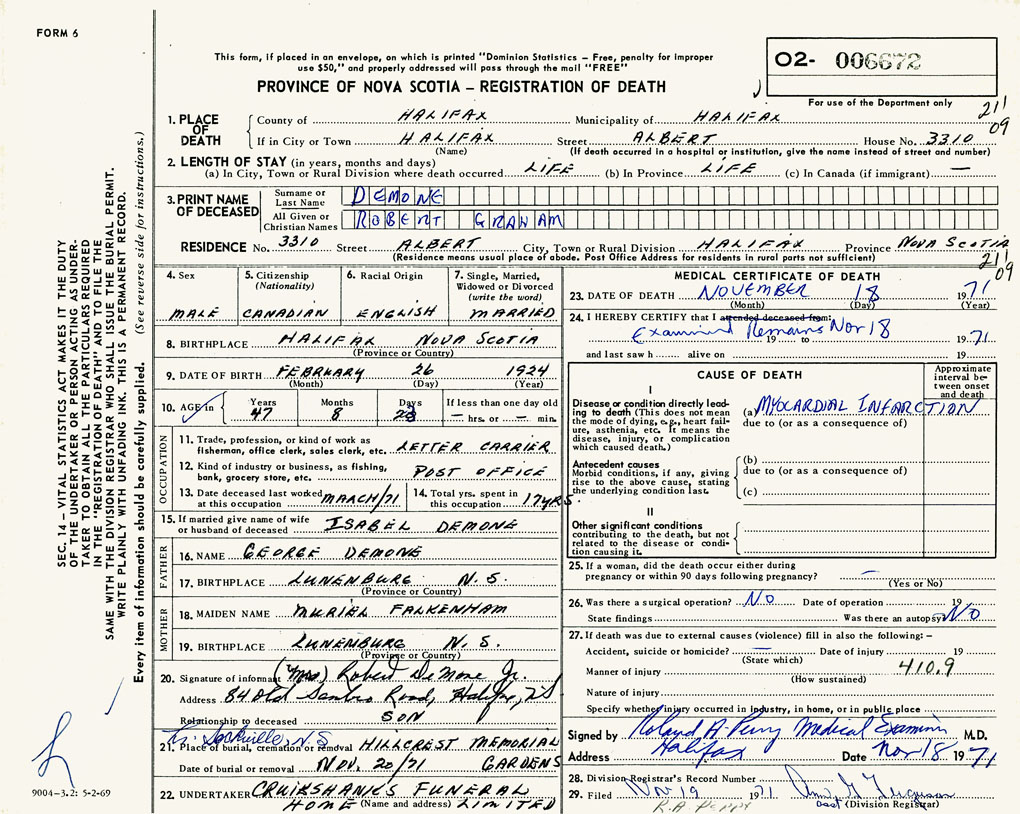 FORM 6
This form, if placed in an envelope, on which is printed "Dominion Statistics – Free, penalty for improper
use $50," and properly addressed will pass through the mail "FREE"
PROVINCE OF NOVA SCOTIA – REGISTRATION OF DEATH
O2- 006672
For use of the Department only
21'
09
1. PLACE OF DEATH
County of HALIFAX Municipality of HALIFAX
If in City or Town HALIFAX Street ALBERT House No. 3310
(Name) (If death occurred in a hospital or institution, give the name instead of street and number)
2. LENGTH OF STAY (in years, months and days)
(a) In City, Town or Rural Division where death occurred LIFE (b) In Province LIFE (c) In Canada (if immigrant) —
3. PRINT NAME OF DECEASED
Surname or Last Name DEMONE
All Given or Christian Names ROBERT GRAHAM
RESIDENCE No. 3310 Street ALBERT City, Town or Rural Division HALIFAX Province NOVA SCOTIA
(Residence means usual place of abode. Post Office Address for residents in rural parts not sufficient)
21'
09
4. Sex MALE
5. Citizenship (Nationality) CANADIAN
6. Racial Origin ENGLISH
7. Single, Married, Widowed or Divorced (write the word) MARRIED
8. BIRTHPLACE HALIFAX NOVA SCOTIA
(Province or Country)
9. DATE OF BIRTH FEBRUARY 26 1924
(Month) (Day) (Year)
10. AGE in Years 47 Months 8 Days If less than one day old — hrs. or — min.
OCCUPATION
11. Trade, profession, or kind of work as
fisherman, office clerk, sales clerk, etc. LETTER CARRIER
12. Kind of industry or business, as fishing,
bank, grocery store, etc. POST OFFICE
13. Date deceased last worked at this occupation MARCH/71
14. Total yrs. spent in this occupation 17 YRS
15. If married give name of wife
or husband of deceased ISABEL DEMONE
FATHER
16. NAME GEORGE DEMONE
17. BIRTHPLACE LUNENBURG N.S.
(Province or Country)
MOTHER
18. MAIDEN NAME MURIEL FALKENHAM
19. BIRTHPLACE LUNENBURG N.S.
(Province or Country)
20. Signature of informant (Mrs) Robert DeMone Jr.
Address 84 Old Sambro Road, Halifax, NS
Relationship to deceased SON
Lr. Sackville, N.S
21. Place of burial, cremation or removal HILLCREST MEMORIAL
Date of burial or removal NOV. 20/71 GARDENS
22. UNDERTAKER CRUIKSHANKS FUNERAL
HOME (Name and address) LIMITED
MEDICAL CERTIFICATE OF DEATH
23. DATE OF DEATH NOVEMBER 18 1971
(Month) (Day) (Year)
24. I HEREBY CERTIFY that I attended deceased from:
Examined Remains Nov 18 19 to 1971
and last saw h alive on 19
CAUSE OF DEATH
Approximate interval between onset and death
I
Disease or condition directly leading to death (This does not mean the mode of dying, e.g., heart failure, asthenia, etc. It means the disease, injury, or complication which caused death.)
(a) MYOCARDIAL INFARCTION
due to (or as a consequence of)
Antecedent causes
Morbid conditions, if any, giving rise to the above cause, stating the underlying condition last.
(b)
due to (or as a consequence of)
(c)
II
Other significant conditions
contributing to the death, but not related to the disease or condition causing it.
25. If a woman, did the death occur either during
pregnancy or within 90 days following pregnancy? —
(Yes or No)
26. Was there a surgical operation? NO Date of operation 19
State findings Was there an autopsy NO
27. If death was due to external causes (violence) fill in also the following: –
Accident, suicide or homicide? — Date of injury 19
(State which)
Manner of injury 410.9
(How sustained)
Nature of injury
Specify whether injury occurred in industry, in home, or in public place
Signed by Roland A Perry Medical Examiner M.D.
Address Halifax Date Nov 18 1971
28. Division Registrar's Record Number
29. Filed Nov 19 1971 Ferguson
R.A PERRY asst (Division Registrar)
SEC. 14 – VITAL STATISTICS ACT MAKES IT THE DUTY
OF THE UNDERTAKER OR PERSON ACTING AS UNDER-
TAKER TO OBTAIN ALL THE PARTICULARS REQUIRED
IN THE "REGISTRATION OF DEATH" AND TO FILE THE
SAME WITH THE DIVISION REGISTRAR WHO SHALL ISSUE THE BURIAL PERMIT.
WRITE PLAINLY WITH UNFADING INK. THIS IS A PERMANENT RECORD.
Every item of information should be carefully supplied. (See reverse side for instructions.)
9004-3.2: 5-2-69